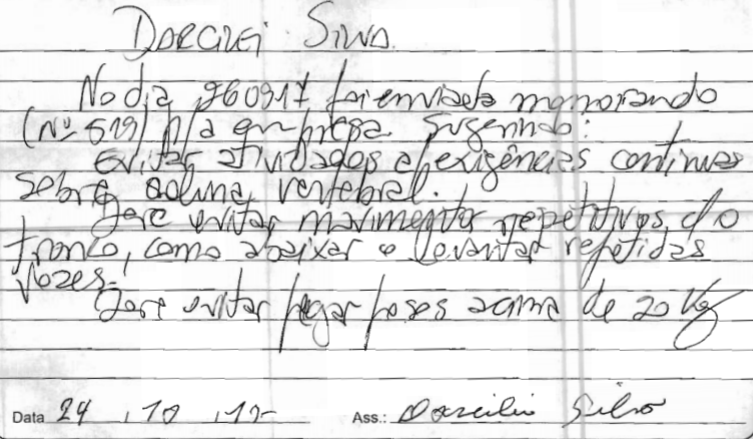 DARCILEI SILVA.
No dia 260917 foi enviado memorando
(Nº 519) p/a empresa sugerindo:
Evitar atividades e/exigências continuas
sobre coluna vertebral.
Deve evitar movimentos repetitivos do
tronco, como abaixar e levantar repetidas
vezes.
Deve evitar pegar pesos acima de 20 Kg
Data 24 .10 .17 Ass.: Darcilei Silva